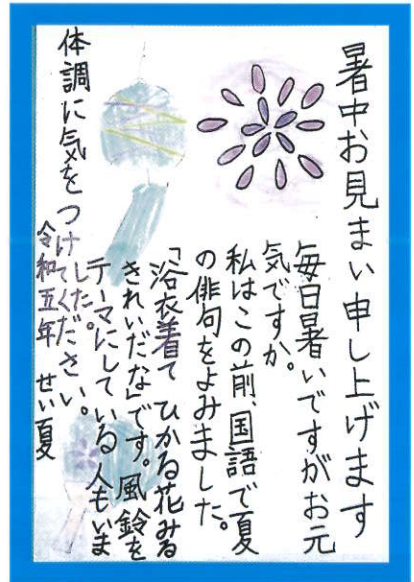 暑中お見まい申し上げます
毎日暑いですがお元
気ですか。
私はこの前、国語で夏
の俳句をよみました。
「浴衣着て ひかる花みる
きれいだな」です。風鈴を
テーマにしている人もいま
した。
体調に気をつけてください。
令和五年 せい夏